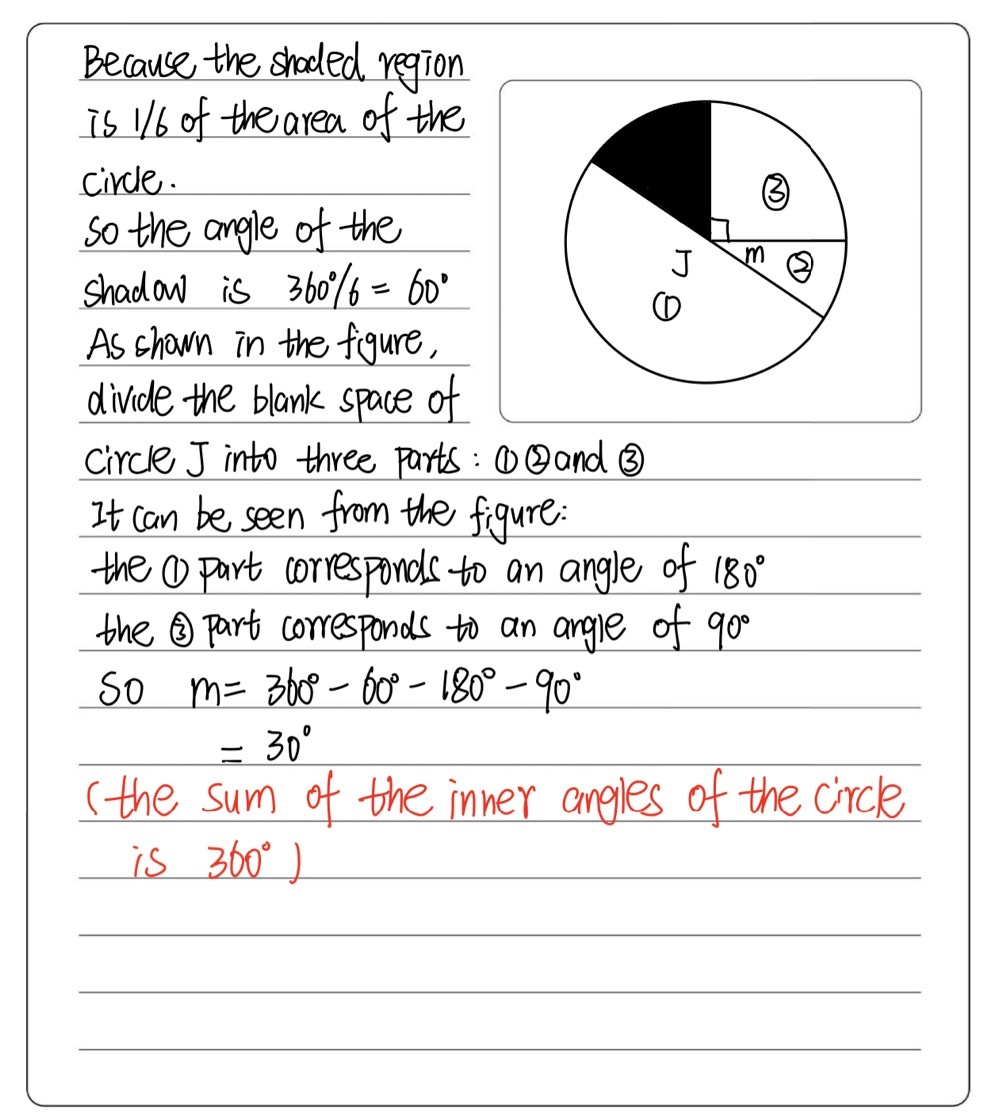 Because the shaded region
is 1/6 of the area of the
circle.
So the angle of the
shadow is 360°/6 = 60°
As shown in the figure,
divide the blank space of
circle J into three parts: ① ② and ③
It can be seen from the figure:
the ① part corresponds to an angle of 180°
the ③ part corresponds to an angle of 90°
So m = 360° - 60° - 180° - 90°
= 30°
(the sum of the inner angles of the circle
is 360°)
③
m ②
J
①